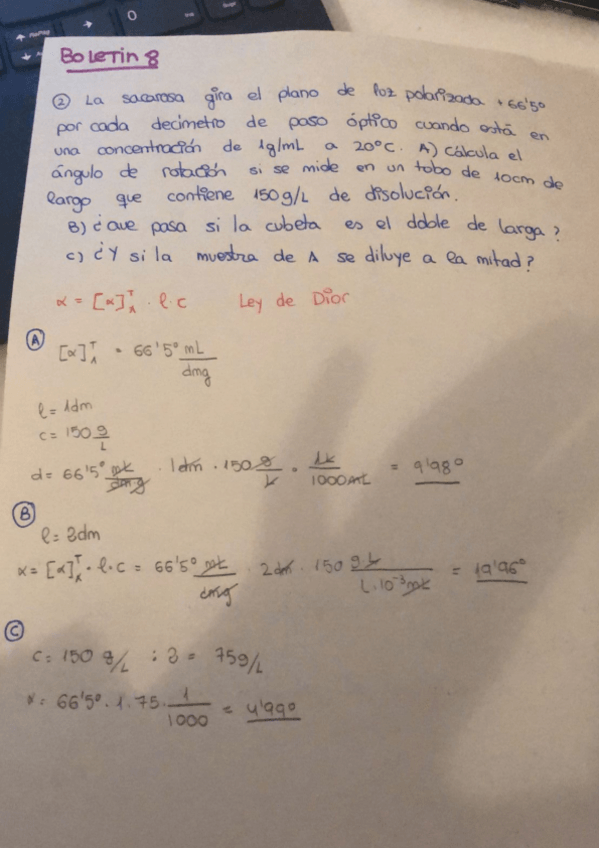 BOLETIN 8
② La sacarosa gira el plano de luz polarizada +66'5º
por cada decímetro de paso óptico cuando está en
una concentración de 1g/mL a 20ºC. A) Cálcula el
ángulo de rotación si se mide en un tobo de 10cm de
largo que contiene 150g/L de disolución.
B) ¿Que pasa si la cubeta es el doble de larga?
C) ¿Y si la muestra de A se diluye a la mitad?
α = [α]ᵀλ · l · c Ley de Dior
Ⓐ
[α]ᵀλ = 66'5º mL/dmg
l = 1dm
c = 150 g/L
α = 66'5º mL/dmg · 1dm · 150 g/L · 1L/1000mL = 9'98º
Ⓑ
l = 2dm
α = [α]ᵀλ · l · c = 66'5º mL/dmg · 2dm · 150 g L/L·10⁻³mL = 19'96º
Ⓒ
c = 150 g/L : 2 = 75g/L
α = 66'5º · 1 · 75 · 1/1000 = 4'99º